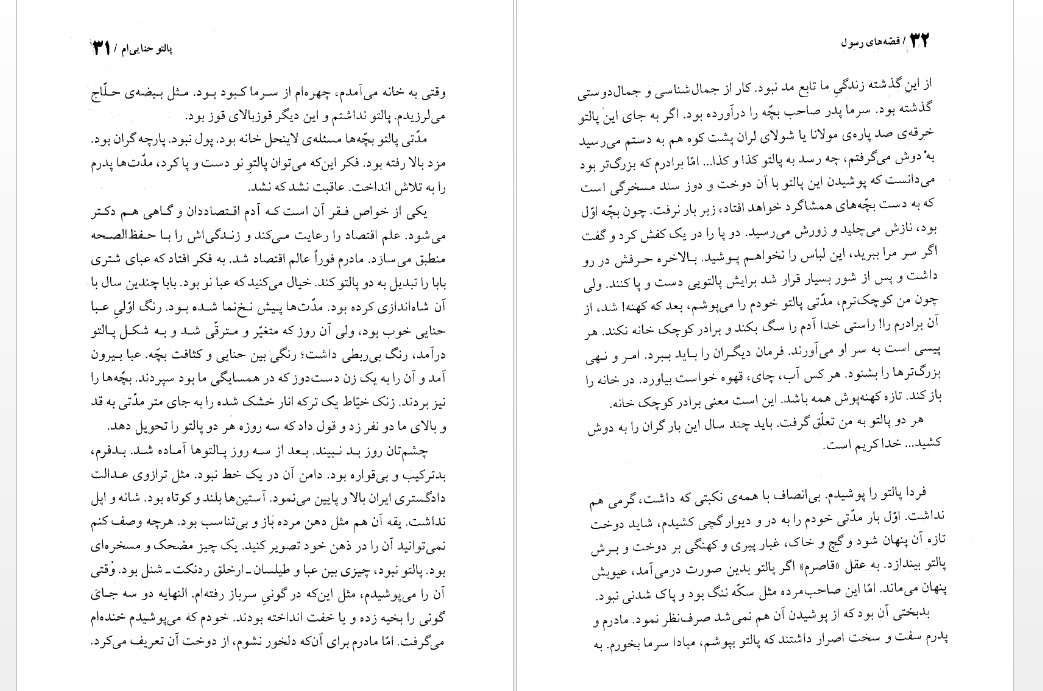 پالتو حنایی‌ام / ۳۱
وقتی به خانه می‌آمدم، چهره‌ام از سرما کبود بود. مثل بیضه‌ی حلّاج
می‌لرزیدم. پالتو نداشتم و این دیگر قوزبالای قوز بود.
مدّتی پالتو بچّه‌ها مسئله‌ی لاینحل خانه بود. پول نبود. پارچه گران بود.
مزد بالا رفته بود. فکر این‌که می‌توان پالتوِ نو دست و پا کرد، مدّت‌ها پدرم
را به تلاش انداخت. عاقبت نشد که نشد.
یکی از خواص فقر آن است که آدم اقتصاددان و گاهی هم دکتر
می‌شود. علم اقتصاد را رعایت می‌کند و زندگی‌اش را با حفظ‌الصحه
منطبق می‌سازد. مادرم فوراً عالم اقتصاد شد. به فکر افتاد که عبای شتری
بابا را تبدیل به دو پالتو کند. خیال می‌کنید که عبا نو بود. بابا چندین سال با
آن شاه‌اندازی کرده بود. مدّت‌ها پیش نخ‌نما شده بود. رنگ اوّلیِ عبا
حنایی خوب بود، ولی آن روز که متغیّر و مترقّی شد و به شکل پالتو
درآمد، رنگ بی‌ربطی داشت؛ رنگی بین حنایی و کثافت بچّه. عبا بیرون
آمد و آن را به یک زن دست‌دوز که در همسایگی ما بود سپردند. بچّه‌ها را
نیز بردند. زنک خیّاط یک ترکه انار خشک شده را به جای متر مدّتی به قد
و بالای ما دو نفر زد و قول داد که سه روزه هر دو پالتو را تحویل دهد.
چشم‌تان روز بد نبیند. بعد از سه روز پالتوها آماده شد. بدفرم،
بدترکیب و بی‌قواره بود. دامن آن در یک خط نبود. مثل ترازوی عدالت
دادگستری ایران بالا و پایین می‌نمود. آستین‌ها بلند و کوتاه بود. شانه و اپل
نداشت. یقه آن هم مثل دهن مرده باز و بی‌تناسب بود. هرچه وصف کنم
نمی‌توانید آن را در ذهن خود تصویر کنید. یک چیز مضحک و مسخره‌ای
بود. پالتو نبود، چیزی بین عبا و طیلسان ـ ارخلق ردنکت ـ شنل بود. وقتی
آن را می‌پوشیدم، مثل این‌که در گونیِ سرباز رفته‌ام. النهایه دو سه جای
گونی را بخیه زده و یا خفت انداخته بودند. خودم که می‌پوشیدم خنده‌ام
می‌گرفت. امّا مادرم برای آن‌که دلخور نشوم، از دوخت آن تعریف می‌کرد.
۳۲ / قصّه‌های رسول
از این گذشته زندگیِ ما تابع مد نبود. کار از جمال‌شناسی و جمال‌دوستی
گذشته بود. سرما پدر صاحب بچّه را درآورده بود. اگر به جای این پالتو
خرقه‌ی صد پاره‌ی مولانا یا شولای لران پشت کوه هم به دستم می‌رسید
به دوش می‌گرفتم، چه رسد به پالتو کذا و کذا... امّا برادرم که بزرگ‌تر بود
می‌دانست که پوشیدن این پالتو با آن دوخت و دوز سند مسخرگی است
که به دست بچّه‌های همشاگرد خواهد افتاد، زیر بار نرفت. چون بچّه اوّل
بود، نازش می‌چلید و زورش می‌رسید. دو پا را در یک کفش کرد و گفت
اگر سر مرا ببرید، این لباس را نخواهم پوشید. بالاخره حرفش در رو
داشت و پس از شور بسیار قرار شد برایش پالتویی دست و پا کنند. ولی
چون من کوچک‌ترم، مدّتی پالتو خودم را می‌پوشم، بعد که کهنه! شد، از
آن برادرم را! راستی خدا آدم را سگ بکند و برادر کوچک خانه نکند. هر
پیسی است به سر او می‌آورند. فرمان دیگران را باید ببرد. امر و نهی
بزرگ‌ترها را بشنود. هر کس آب، چای، قهوه خواست بیاورد. در خانه را
باز کند. تازه کهنه‌پوش همه باشد. این است معنی برادر کوچک خانه.
هر دو پالتو به من تعلّق گرفت. باید چند سال این بار گران را به دوش
کشید... خدا کریم است.
فردا پالتو را پوشیدم. بی‌انصاف با همه‌ی نکبتی که داشت، گرمی هم
نداشت. اوّل بار مدّتی خودم را به در و دیوار گچی کشیدم، شاید دوخت
تازه آن پنهان شود و گچ و خاک، غبار پیری و کهنگی بر دوخت و برش
پالتو بیندازد. به عقل «قاصرم» اگر پالتو بدین صورت درمی‌آمد، عیوبش
پنهان می‌ماند. امّا این صاحب‌مرده مثل سکّه ننگ بود و پاک شدنی نبود.
بدبختی آن بود که از پوشیدن آن هم نمی‌شد صرف‌نظر نمود. مادرم و
پدرم سفت و سخت اصرار داشتند که پالتو بپوشم، مبادا سرما بخورم. به